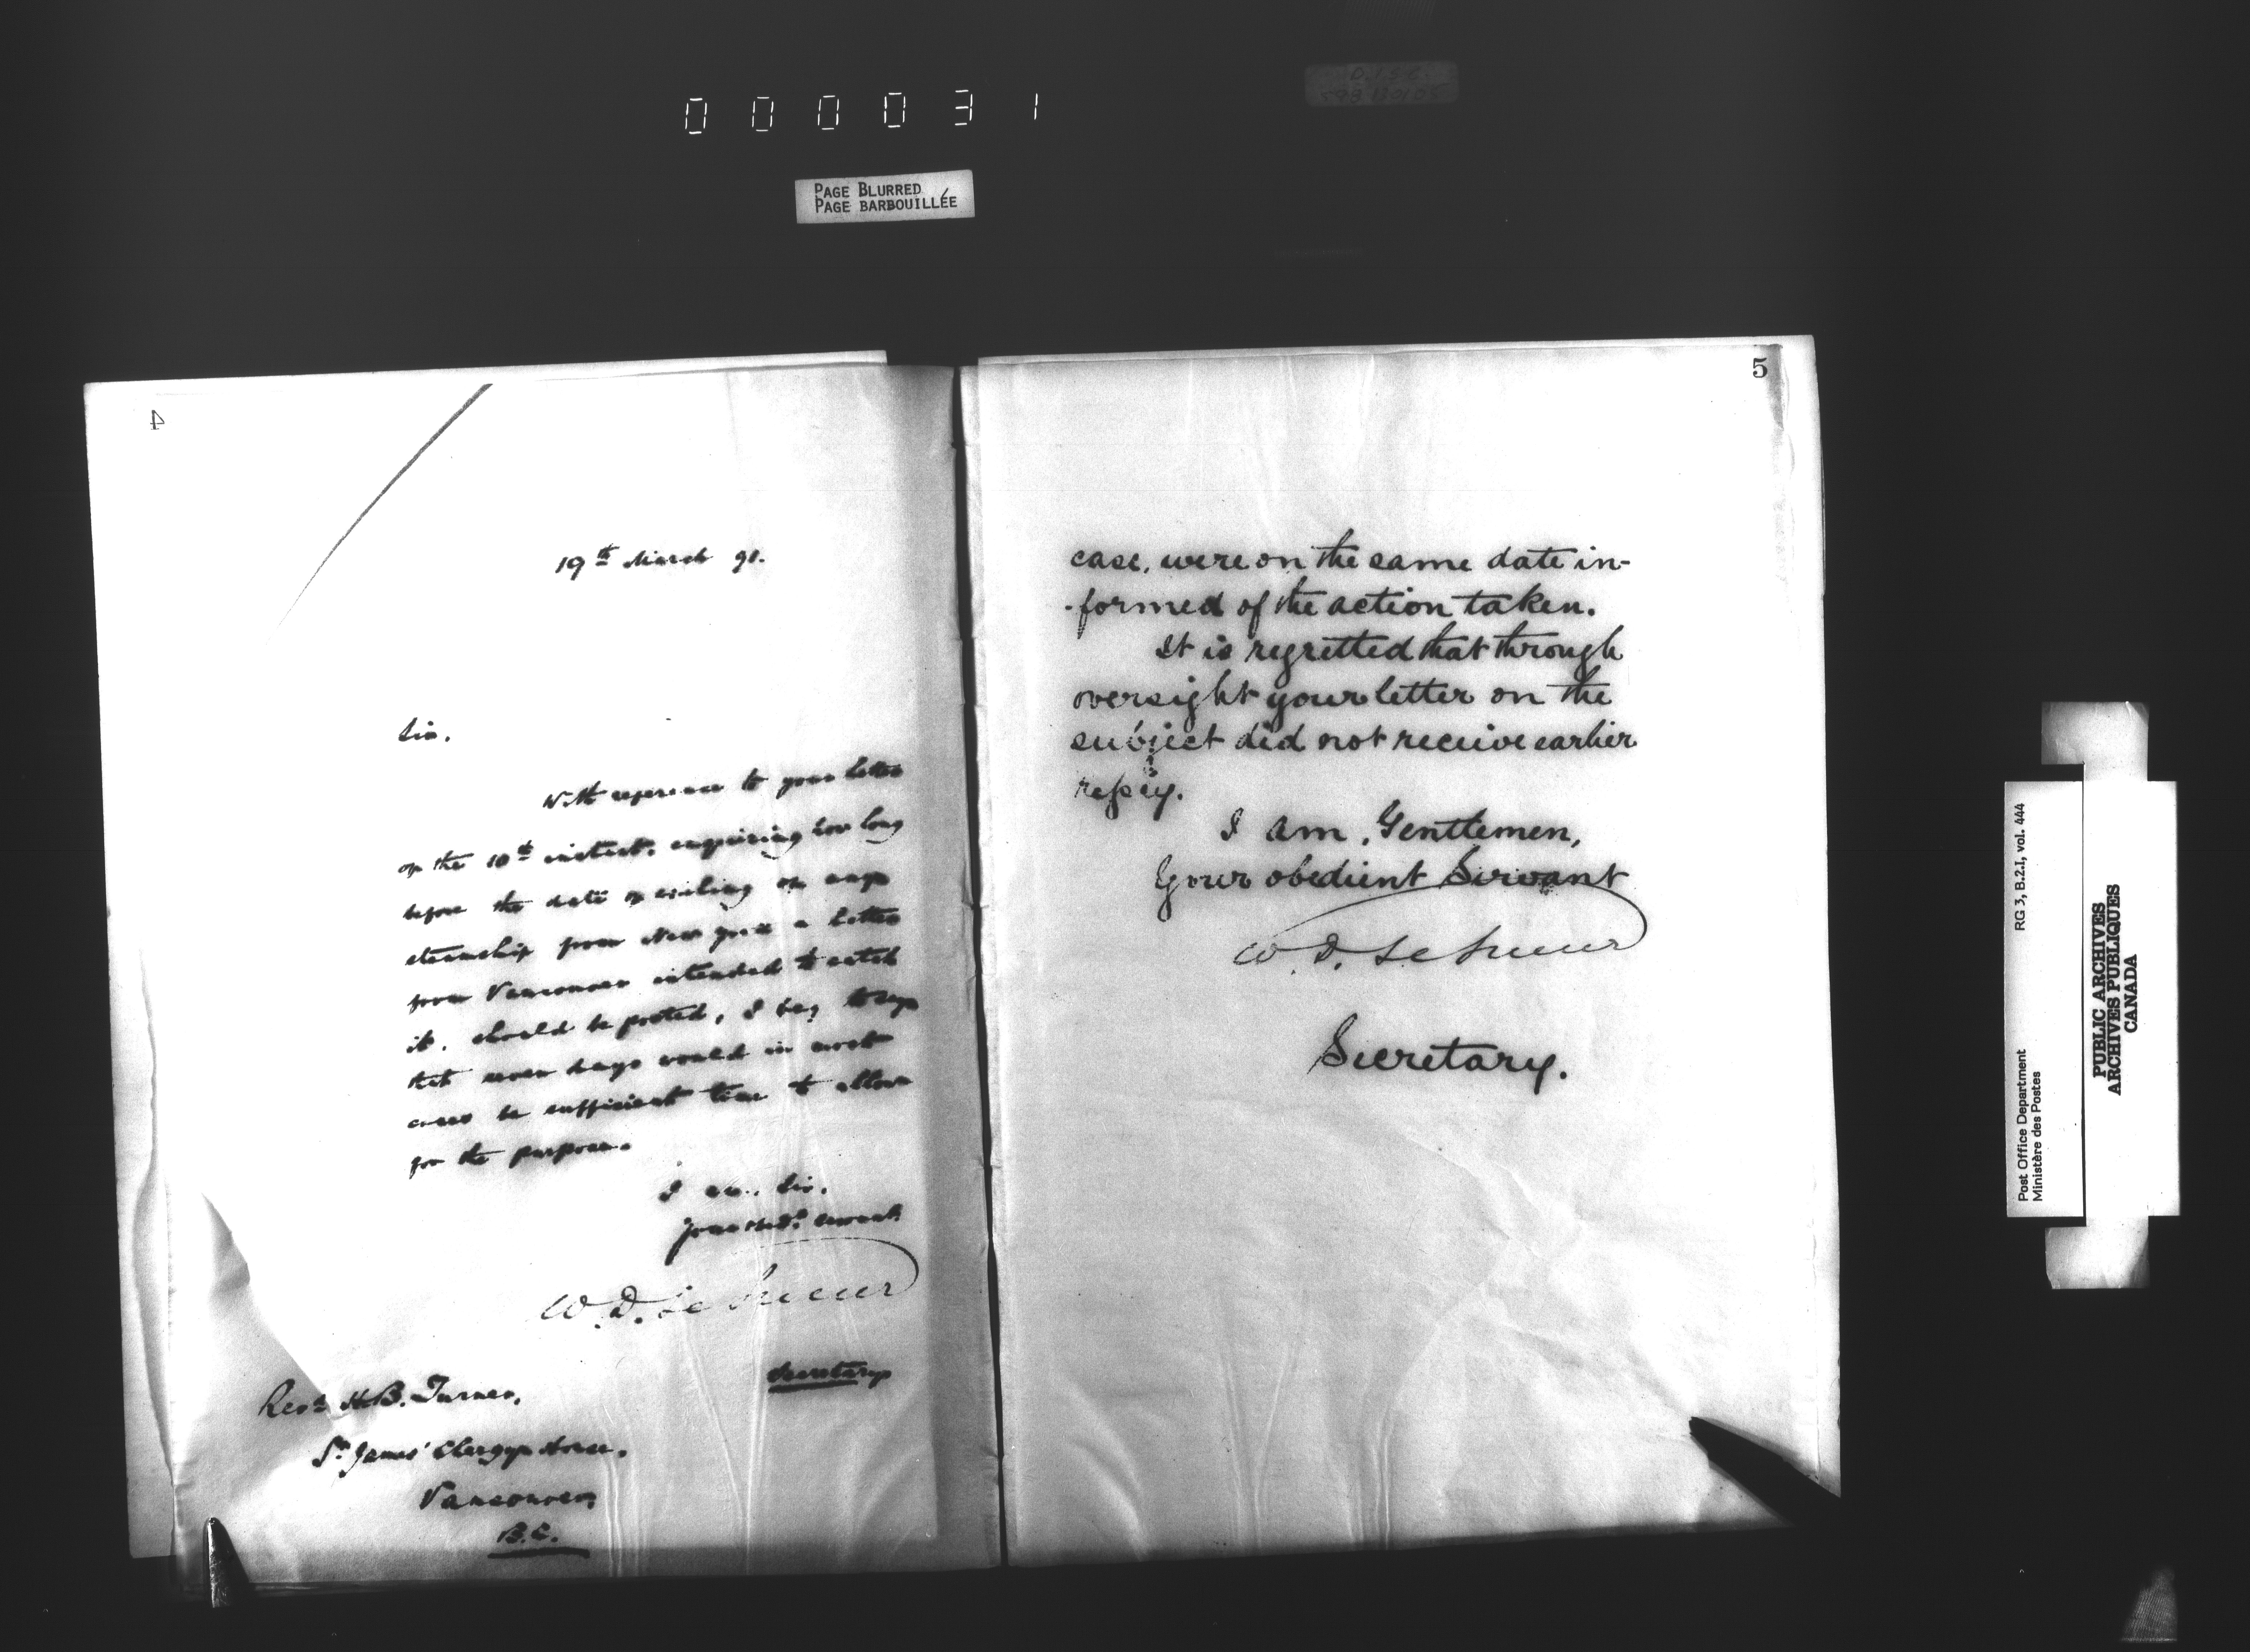 000031
PAGE BLURRED
PAGE BARBOUILLÉE
4
19th March 91.
Sir,
With reference to your letter
of the 10th instant, enquiring how long
before the date of sailing of any
steamship from New York a letter
from Vancouver intended to catch
it, should be posted, I beg to say
that seven days would in most
cases be sufficient time to allow
for the purpose.
I am, Sir,
Your obdt. servant
W. D. LeSueur
Secretary
Revd. H.B. Turner,
St. James' Clergy House,
Vancouver,
B.C.
5
case, were on the same date in-
-formed of the action taken.
It is regretted that through
oversight your letter on the
subject did not receive earlier
reply.
I am, Gentlemen,
Your obedient Servant
W. D. LeSueur
Secretary.
Post Office Department
Ministère des Postes
RG 3, B.2.I, vol. 444
PUBLIC ARCHIVES
ARCHIVES PUBLIQUES
CANADA